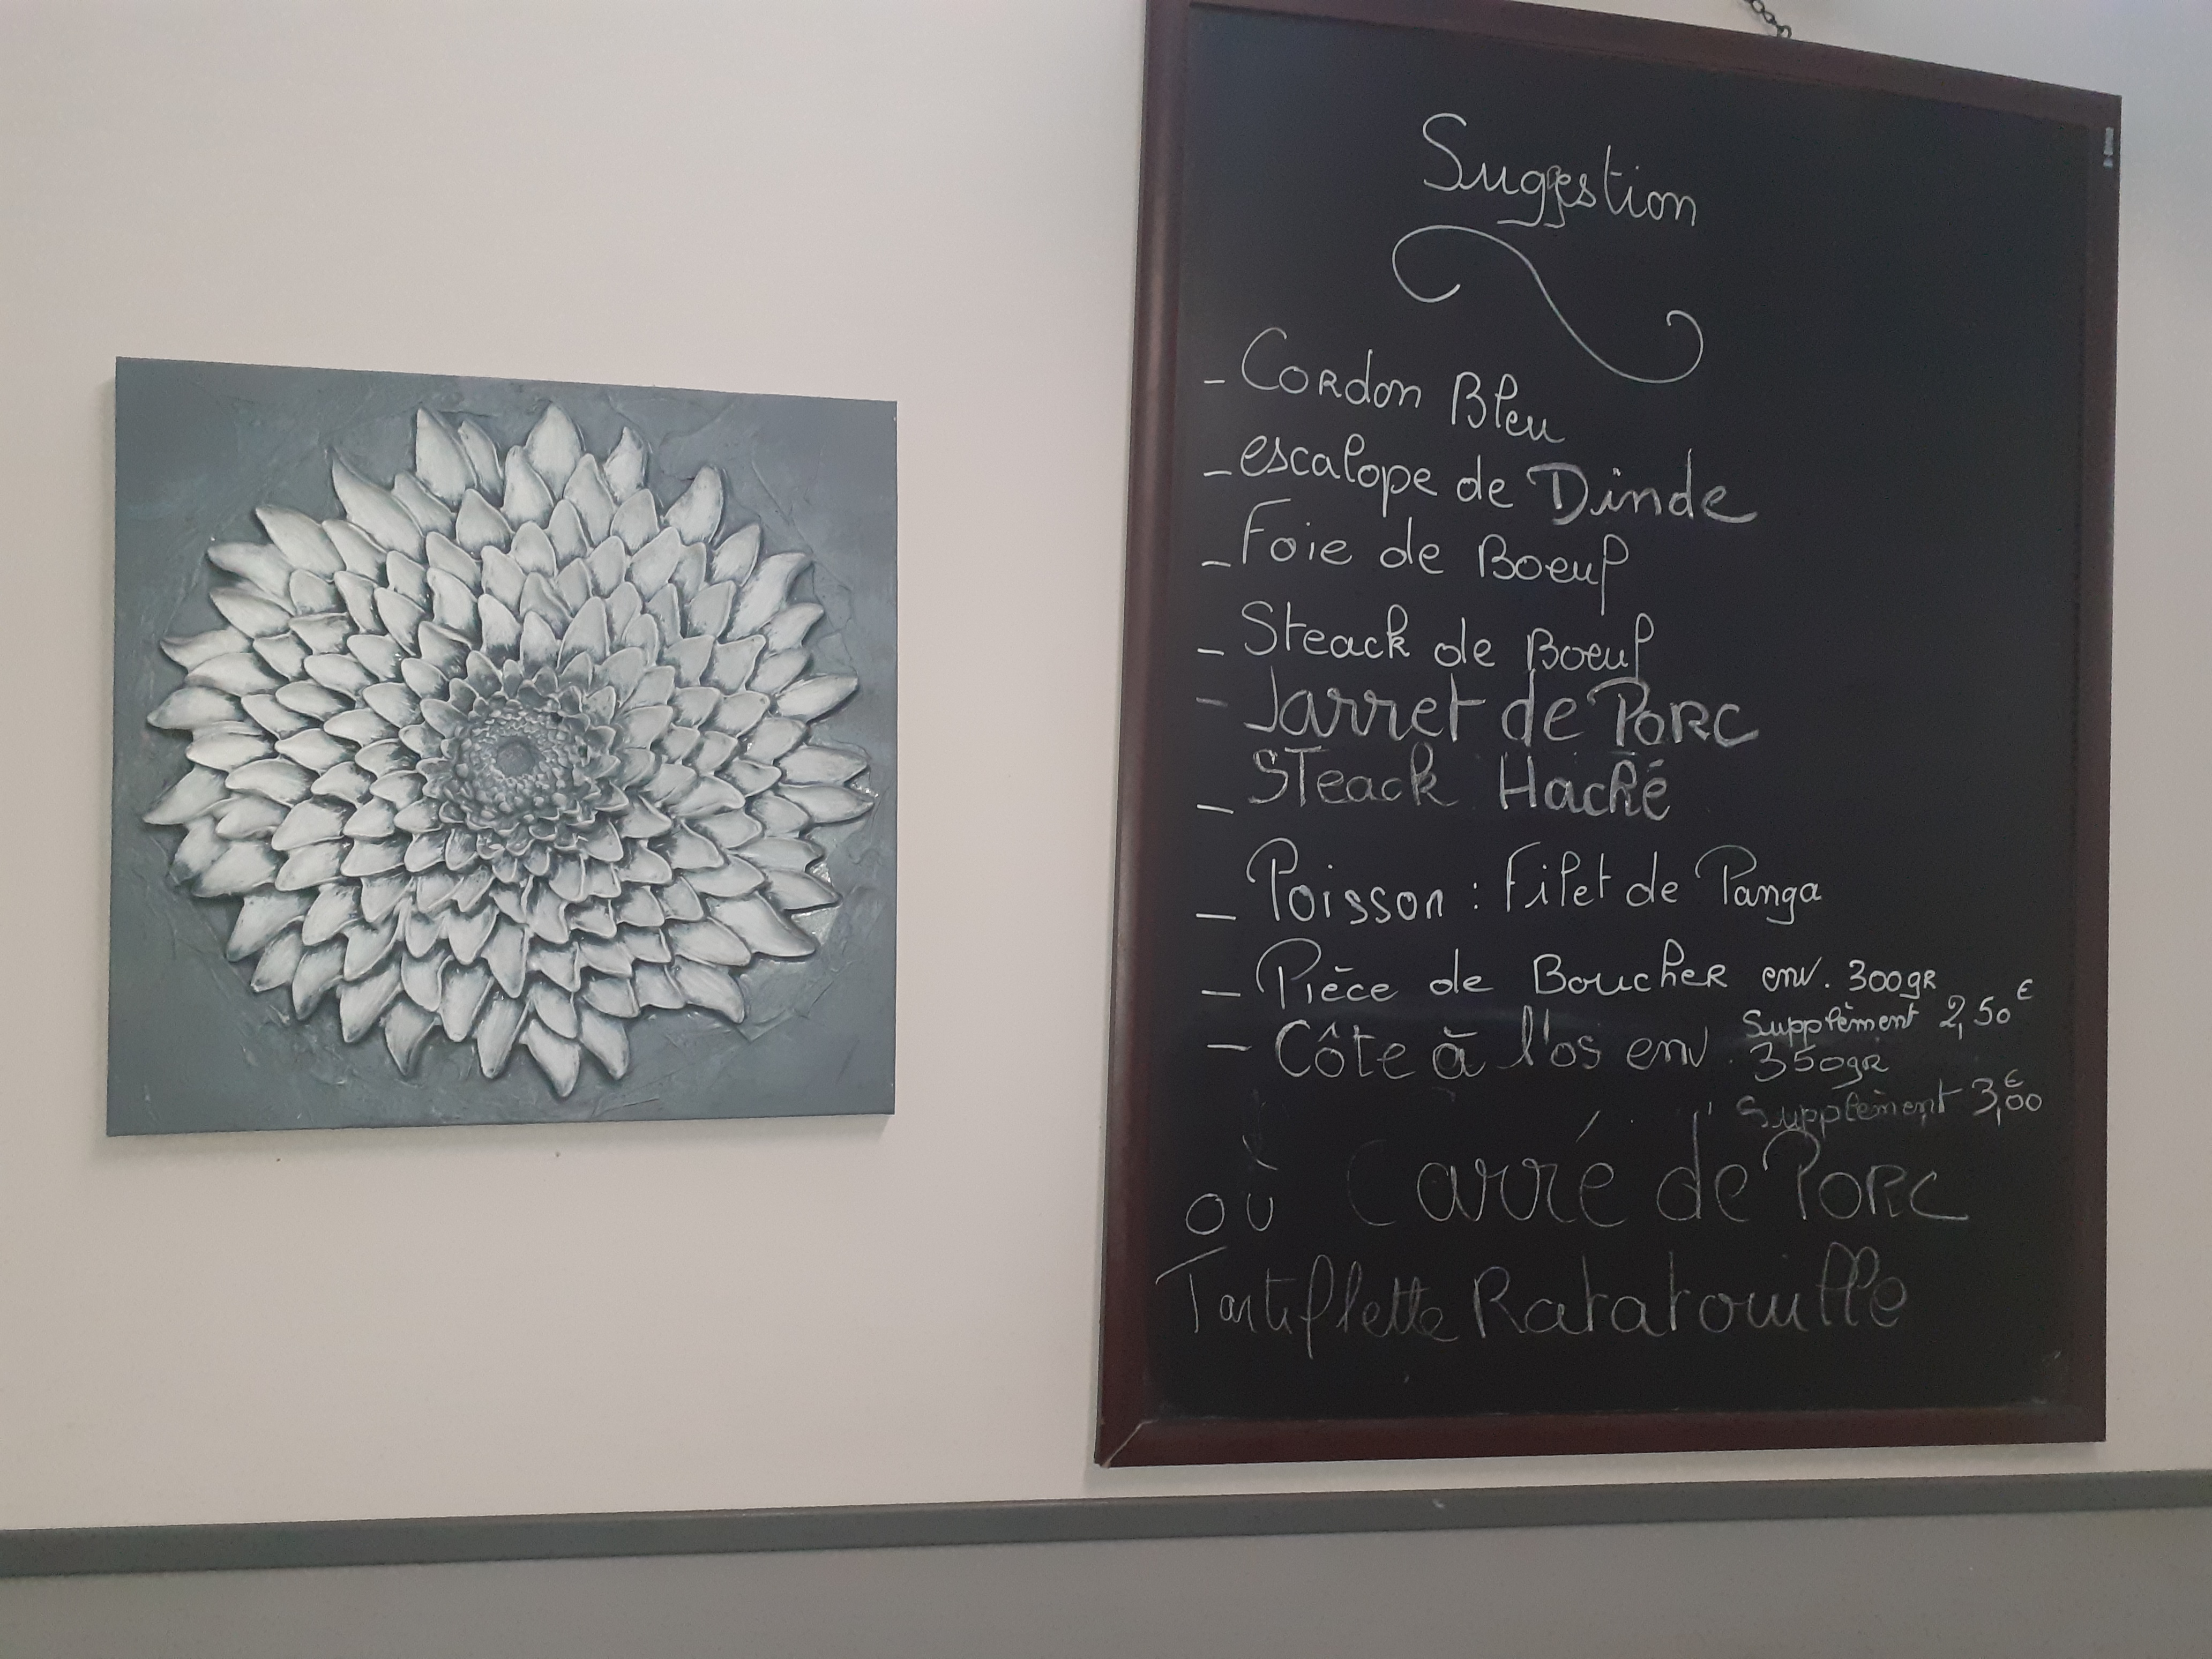 Suggestion
- Cordon Bleu
- escalope de Dinde
- Foie de Boeuf
- Steack de Boeuf
- Jarret de Porc
- Steack Haché
- Poisson : Filet de Panga
- Pièce de Boucher env. 300gr
Supplèment 2,50€
- Côte à l'os env. 350gr
Supplèment 3,00€
où Carré de Porc
Tartiflette Ratatouille